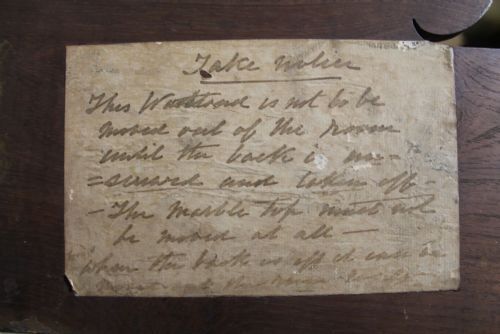 Take notice
This Washstand is not to be
moved out of the room
until the back is un=
=screwed and taken off -
- The marble top must not
be moved at all -
When the back is off it can be